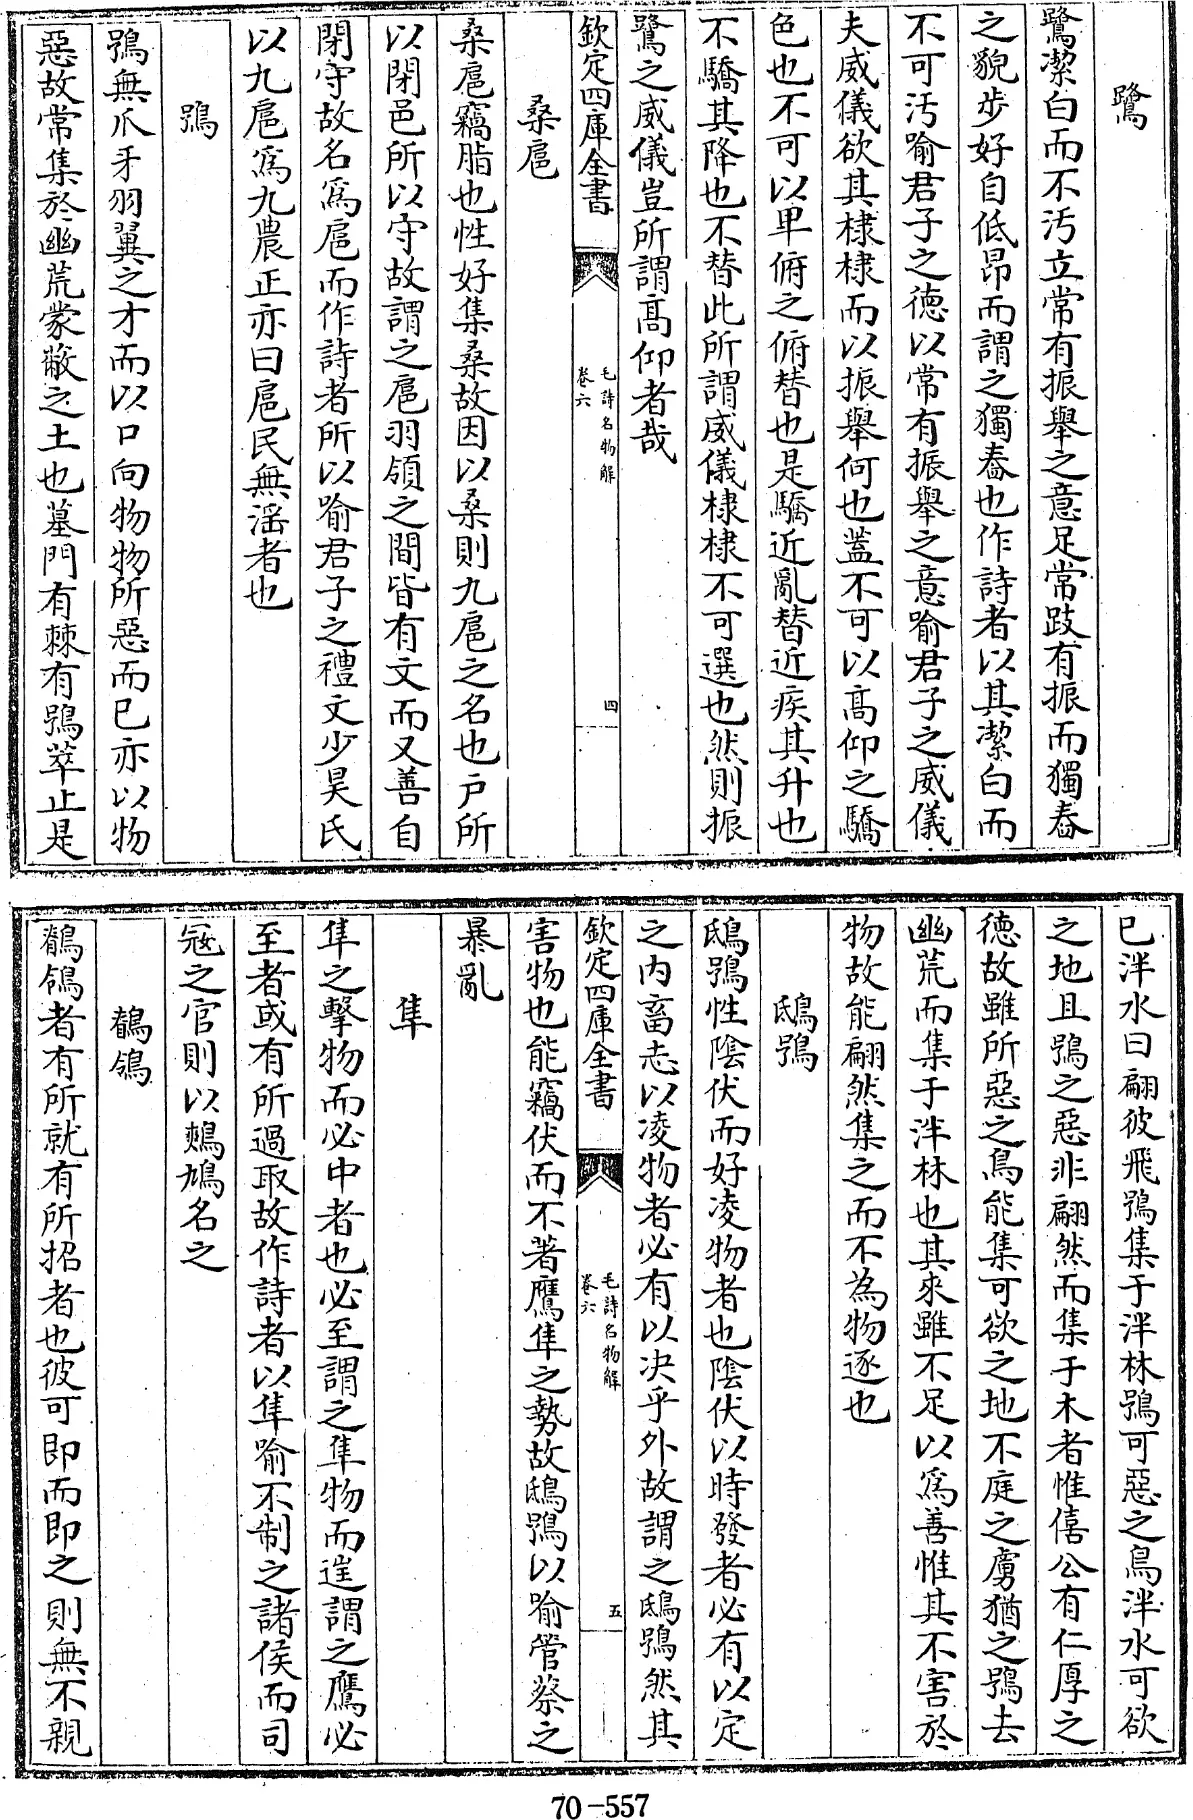 鷺
鷺潔白而不汚立常有振舉之意足常跂有振而獨舂
之貌步好自低昻而謂之獨舂也作詩者以其潔白而
不可汚喻君子之德以常有振舉之意喻君子之威儀
夫威儀欲其棣棣而以振舉何也蓋不可以髙仰之驕
色也不可以卑俯之俯替也是驕近亂替近疾其升也
不驕其降也不替此所謂威儀棣棣不可選也然則振
鷺之威儀豈所謂髙仰者哉
欽定四庫全書 毛詩名物解 卷六 四
桑扈
桑扈竊脂也性好集桑故因以桑則九扈之名也户所
以閉邑所以守故謂之扈羽領之間皆有文而又善自
閉守故名爲扈而作詩者所以喻君子之禮文少昊氏
以九扈爲九農正亦曰扈民無滛者也
鴞
鴞無爪牙羽翼之才而以口向物物所惡而已亦以物
惡故常集於幽荒蒙蔽之土也墓門有棘有鴞萃止是
已泮水曰翩彼飛鴞集于泮林鴞可惡之鳥泮水可欲
之地且鴞之惡非翩然而集于木者惟僖公有仁厚之
德故雖所惡之鳥能集可欲之地不庭之虜猶之鴞去
幽荒而集于泮林也其來雖不足以爲善惟其不害於
物故能翩然集之而不為物逐也
鴟鴞
鴟鴞性陰伏而好凌物者也陰伏以時發者必有以定
之内畜志以凌物者必有以决乎外故謂之鴟鴞然其
欽定四庫全書 毛詩名物解 卷六 五
害物也能竊伏而不著鷹隼之勢故鴟鴞以喻管蔡之
暴亂
隼
隼之擊物而必中者也必至謂之隼物而逞謂之鷹必
至者或有所過取故作詩者以隼喻不制之諸侯而司
宼之官則以鷞鳩名之
鶺鴒
鶺鴒者有所就有所招者也彼可即而即之則無不親
70-557